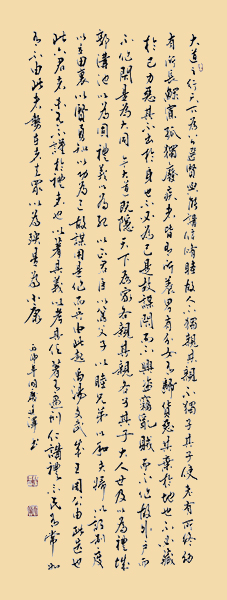 大道之行天下為公選賢與能講信修睦故人不獨親其親不獨子其子使老有所終幼
有所長鰥寡孤獨廢疾者皆有所養男有分女有歸貨惡其棄於地也不必藏
於己力惡其不出於身也不必為己是故謀閉而不興盜竊亂賊而不作故外戶而
不閉是為大同今大道既隱天下為家各親其親各子其子大人世及以為禮城
郭溝池以為固禮義以為紀以正君臣以篤父子以睦兄弟以和夫婦以設制度
以立田里以賢勇知以功為己故謀用是作而兵由此起禹湯文武成王周公由此其選也
此六君子者未有不謹於禮者也以著其義以考其信著有過刑仁講讓示民有常如
有不由此者在勢者去眾以為殃是為小康
丙申年書